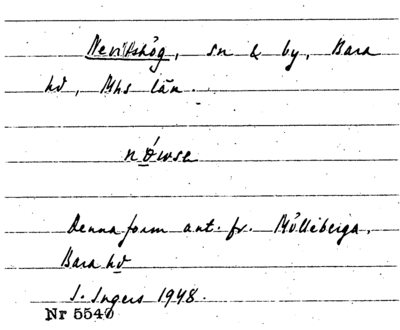 Nevitshög, sn & by, Bara
hd, Mhs län.
nǿwse
Denna form ant. fr. Mölleberga,
Bara hd
I. Ingers 1948.
Nr 5540